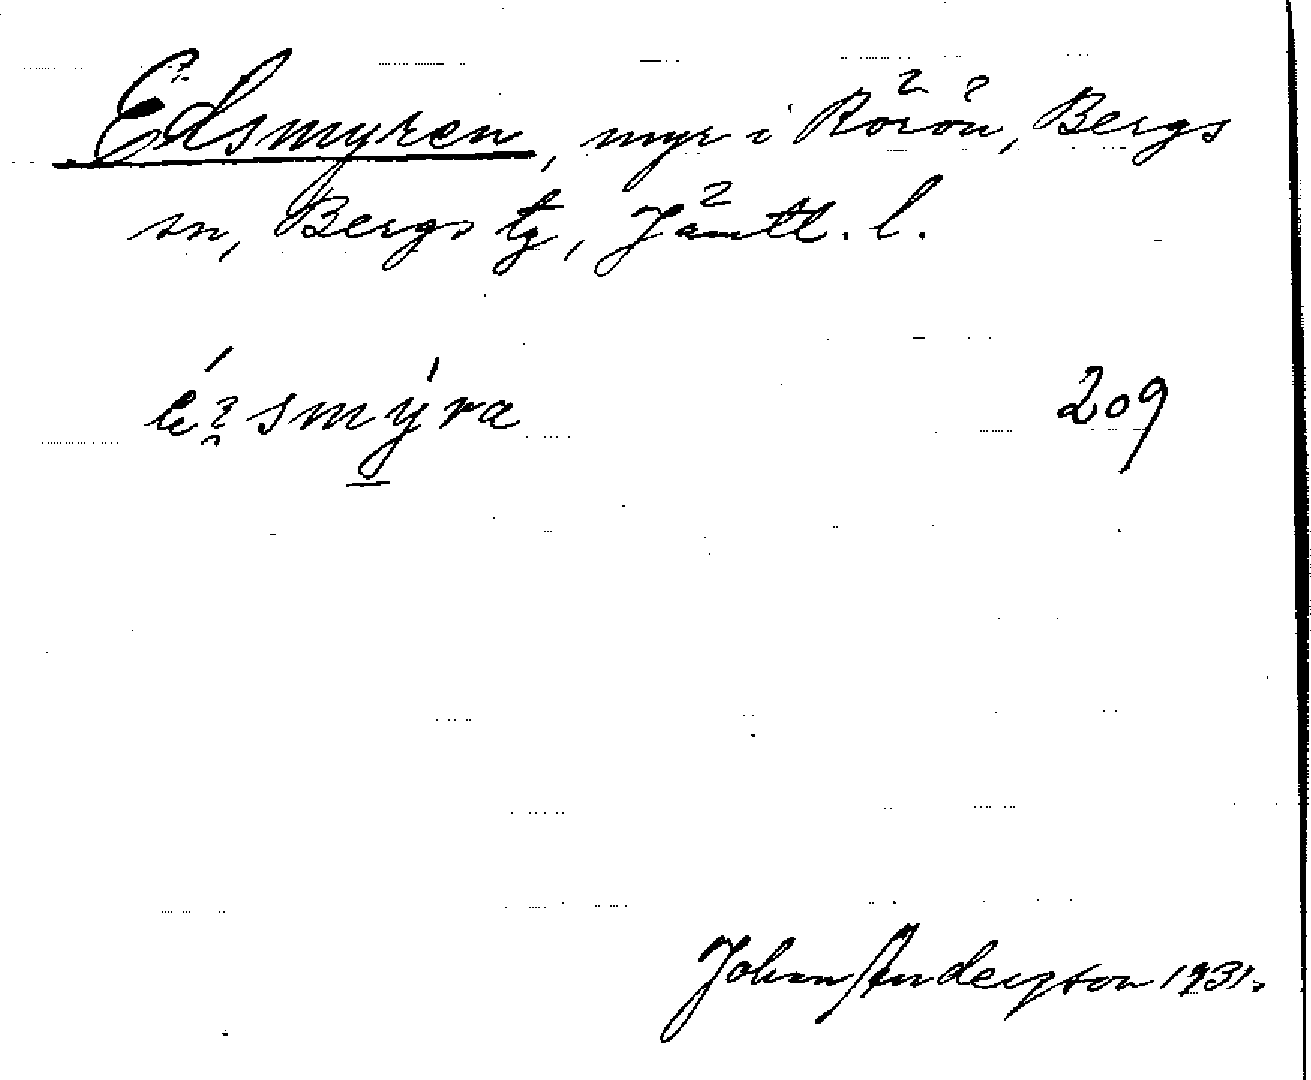 Edsmyren, myr i Rörön, Bergs
sn, Bergs tg, Jämtl. l.
smýra 209
Johan Anderzson 1931.